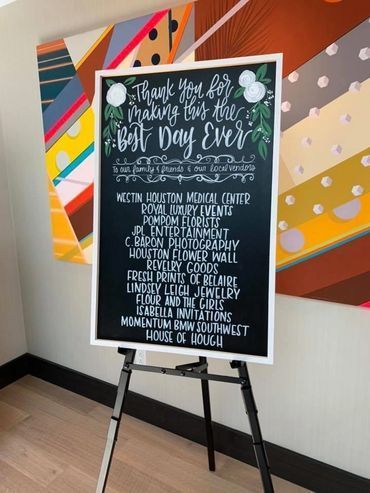 Thank You for
making this the
Best Day Ever
to our family & friends & our local vendors
WESTIN HOUSTON MEDICAL CENTER
ROYAL LUXURY EVENTS
POMPOM FLORISTS
JPL ENTERTAINMENT
C. BARON PHOTOGRAPHY
HOUSTON FLOWER WALL
REVELRY GOODS
FRESH PRINTS OF BELAIRE
LINDSEY LEIGH JEWELRY
FLOUR AND THE GIRLS
ISABELLA INVITATIONS
MOMENTUM BMW SOUTHWEST
HOUSE OF HOUGH